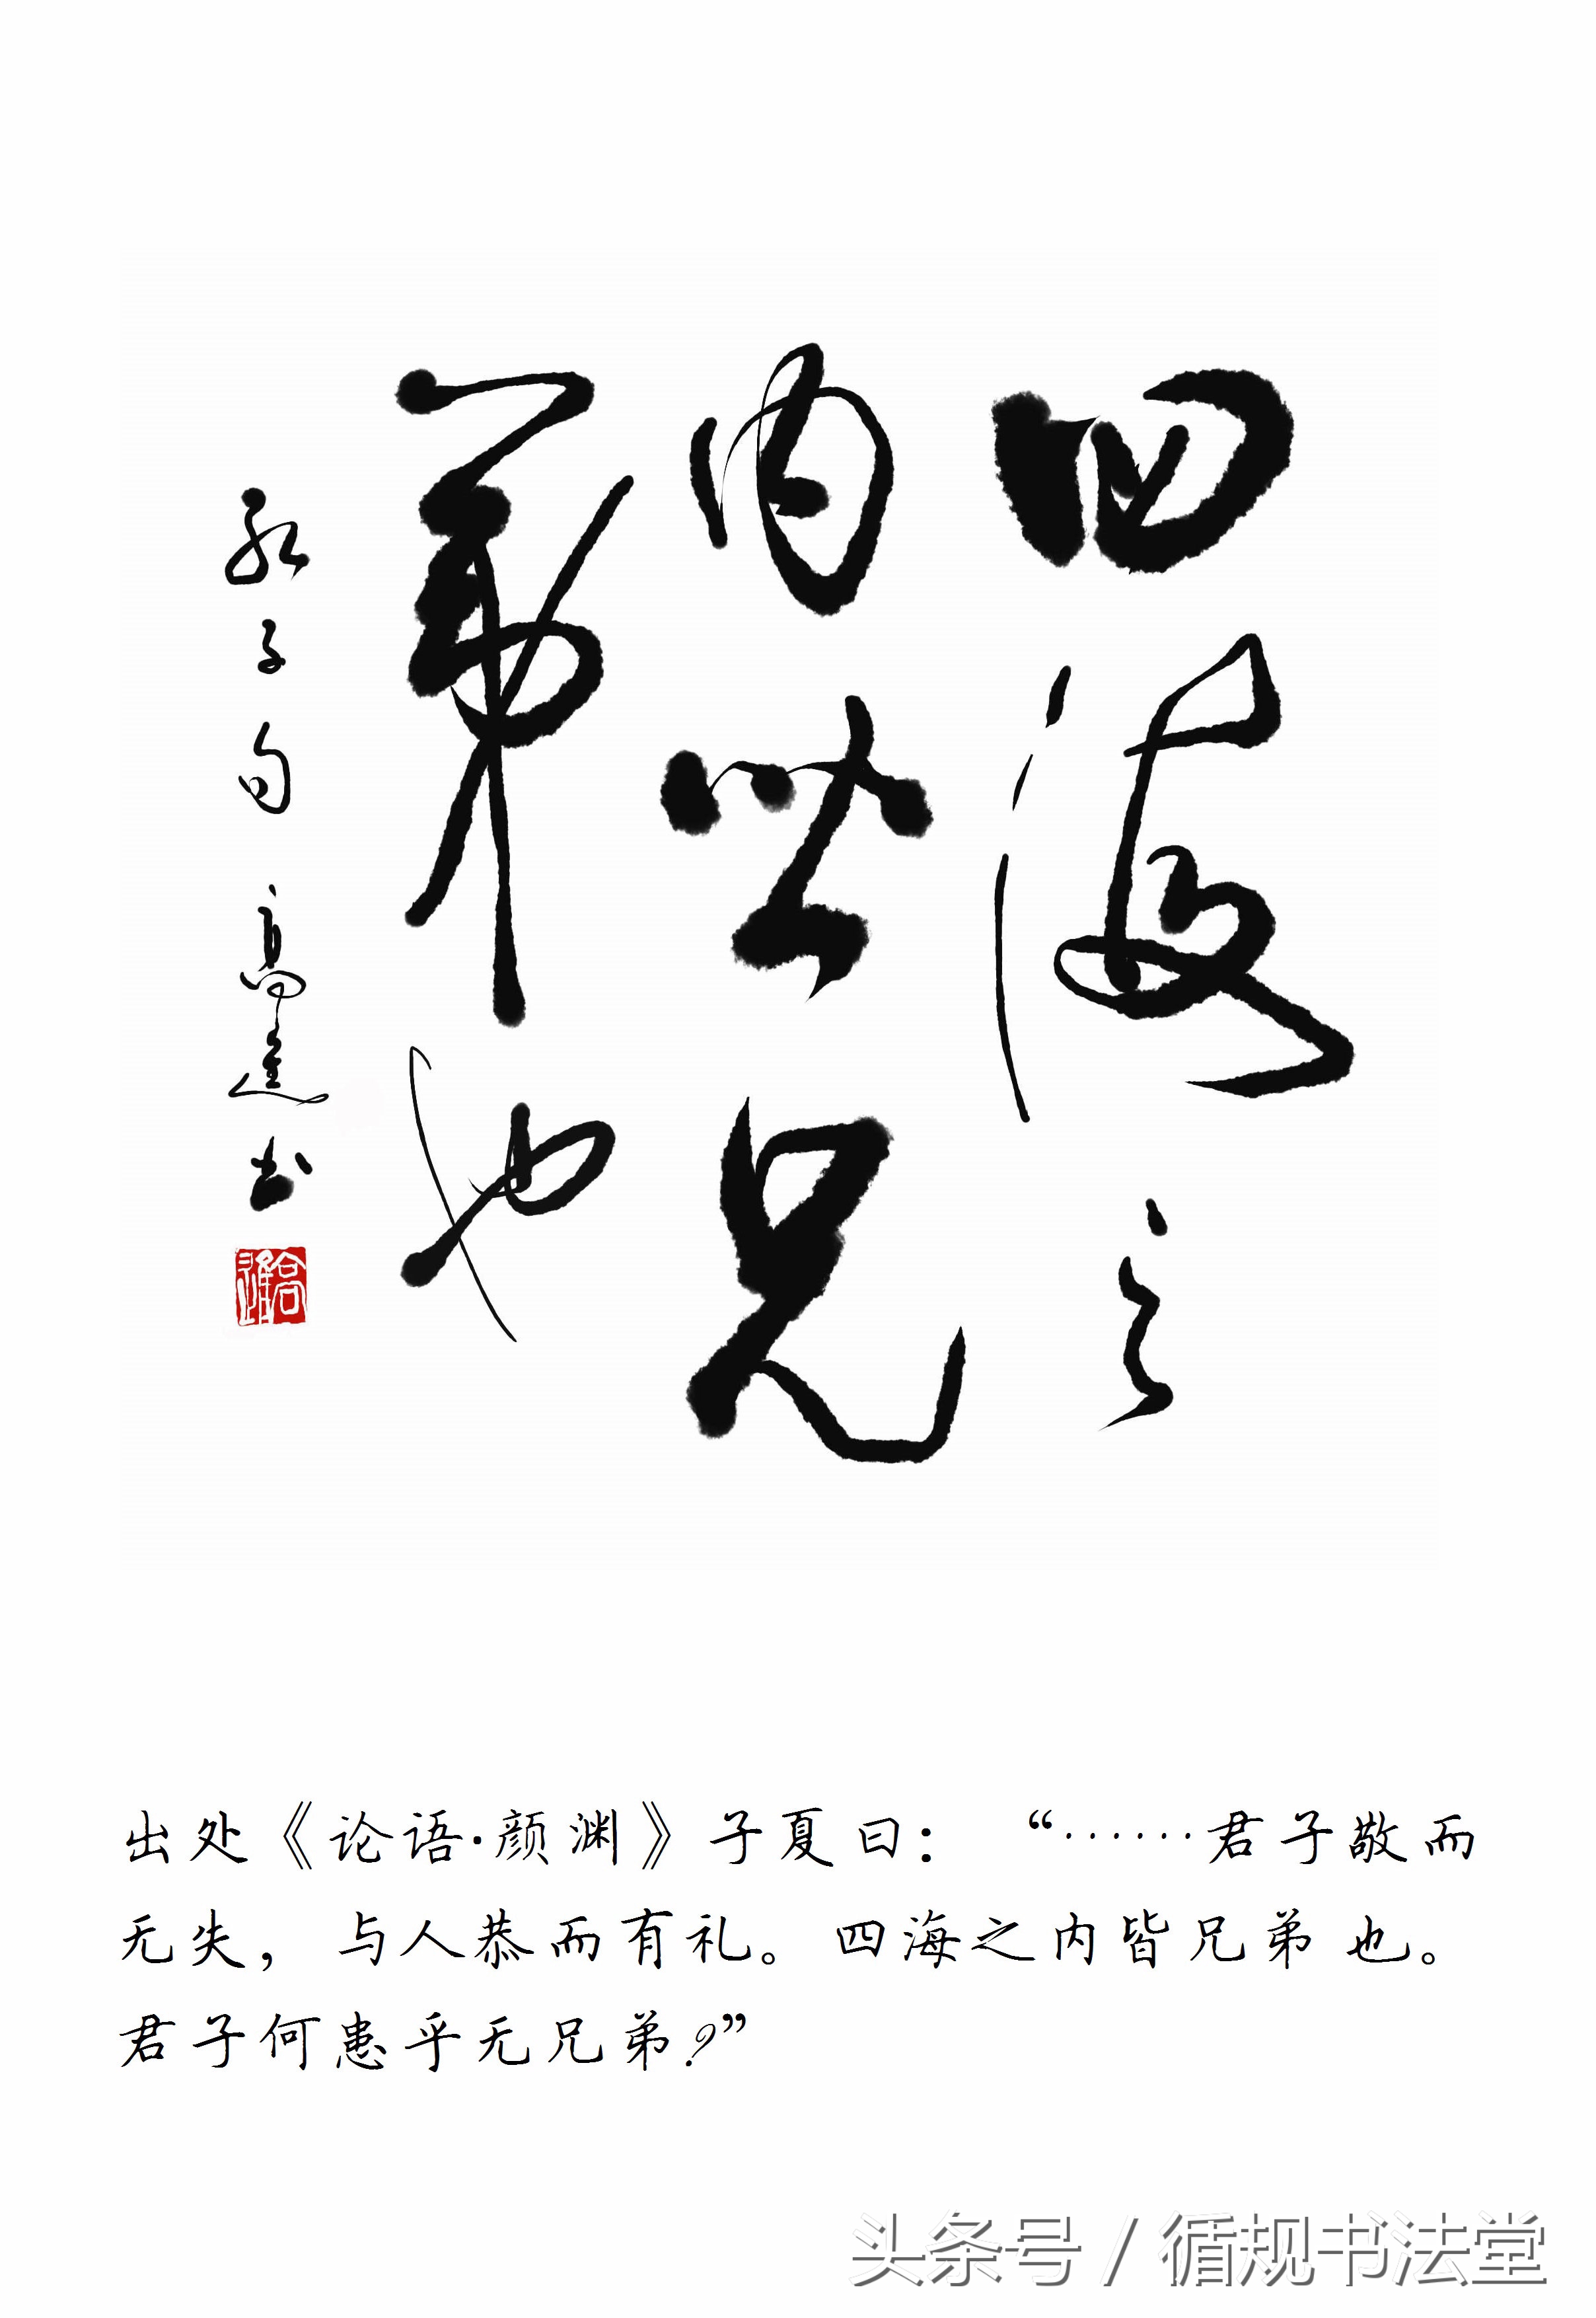 四海之
内皆兄
弟也
孔子句 高进书
高进
出处《论语·颜渊》子夏曰：“······君子敬而
无失，与人恭而有礼。四海之内皆兄弟也。
君子何患乎无兄弟?”
头条号 / 循规书法堂